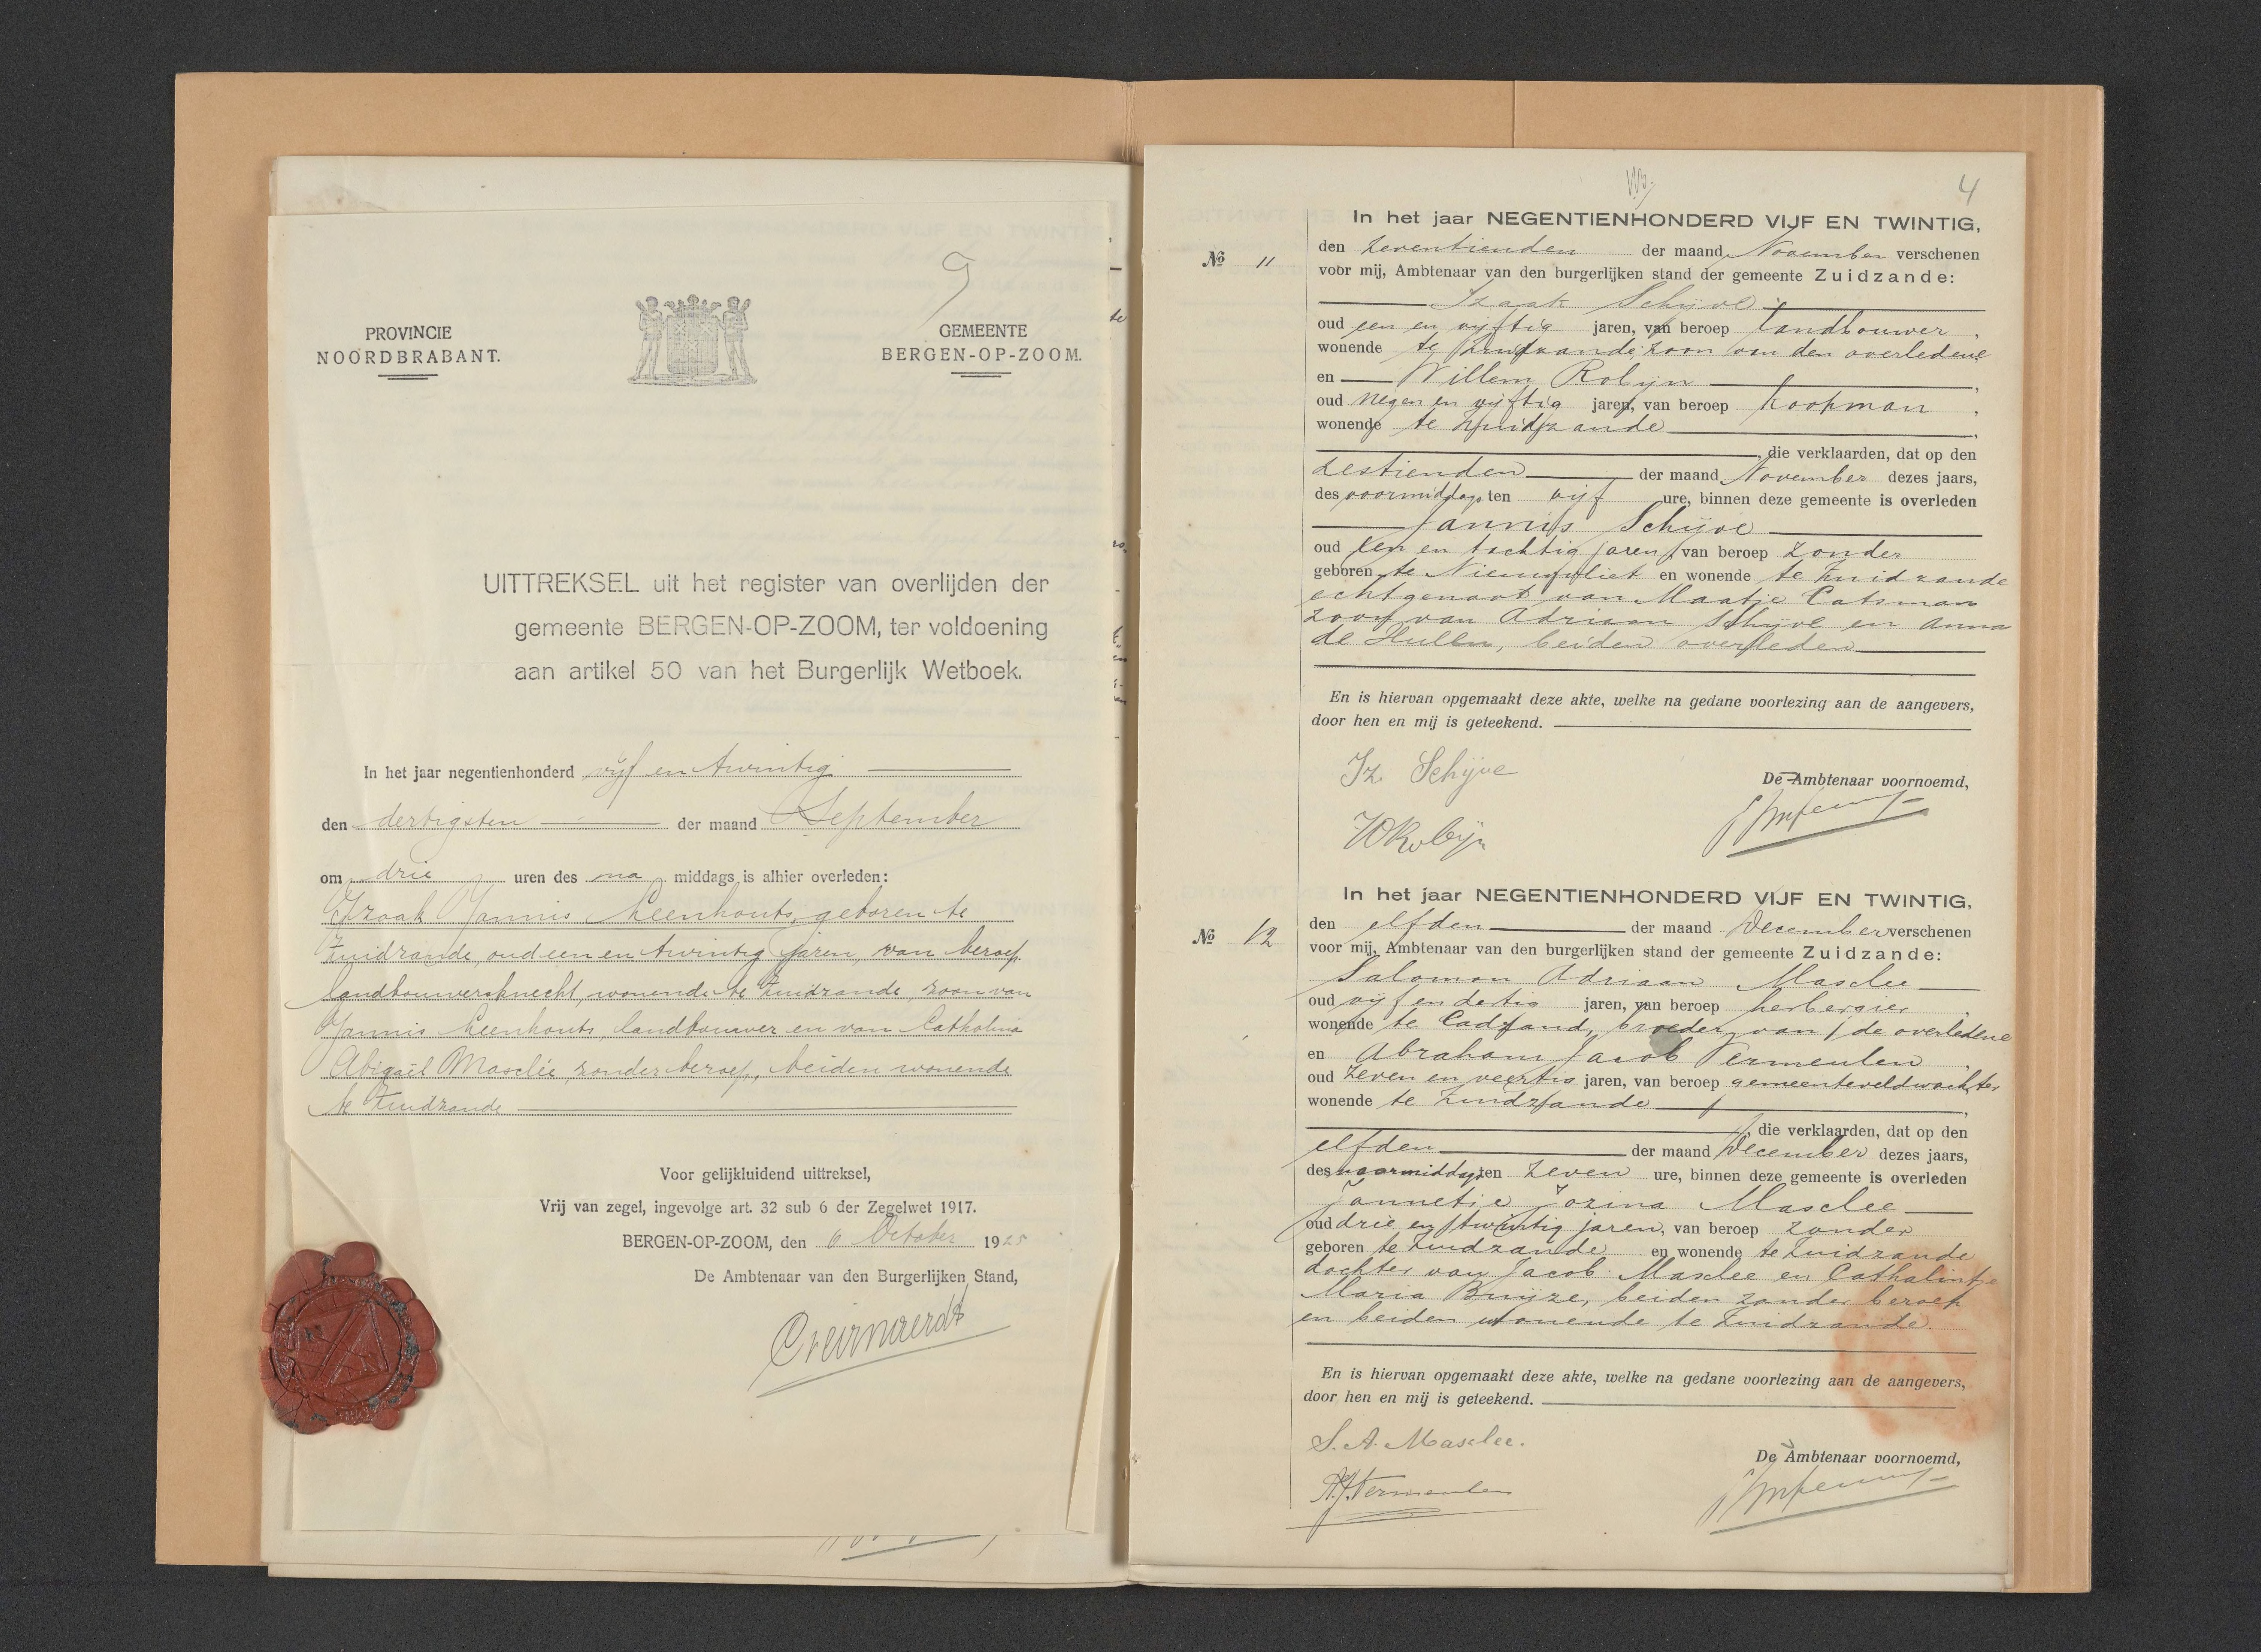 9
PROVINCIE
NOORDBRABANT.
GEMEENTE
BERGEN-OP-ZOOM.
UITTREKSEL uit het register van overlijden der
gemeente BERGEN-OP-ZOOM, ter voldoening
aan artikel 50 van het Burgerlijk Wetboek.
In het jaar negentienhonderd vijf en twintig
den dertigsten der maand September
om drie uren des na middags is alhier overleden:
Izaak Jannis Leenhouts, geboren te
Zuidzande, oud een en twintig jaren, van beroep
landbouwersknecht, wonende te Zuidzande, zoon van
Jannis Leenhouts, landbouwer en van Catholina
Abigaël Masclée, zonder beroep, beiden wonende
te Zuidzande
Voor gelijkluidend uittreksel,
Vrij van zegel, ingevolge art. 32 sub 6 der Zegelwet 1917.
BERGEN-OP-ZOOM, den 6 October 1925
De Ambtenaar van den Burgerlijken Stand,
4
In het jaar NEGENTIENHONDERD VIJF EN TWINTIG,
No 11
den zeventienden der maand November verschenen
voor mij, Ambtenaar van den burgerlijken stand der gemeente Zuidzande:
Izaak Schijve
oud een en vijftig jaren, van beroep landbouwer,
wonende te Zuidzande, zoon van den overledene
en Willem Robijn,
oud negen en vijftig jaren, van beroep koopman,
wonende te Zuidzande,
, die verklaarden, dat op den
zestienden der maand November dezes jaars,
des voormiddags ten vijf ure, binnen deze gemeente is overleden
Jannis Schijve
oud een en tachtig jaren, van beroep zonder
geboren te Nieuwvliet en wonende te Zuidzande
echtgenoot van Maatje Catsman
zoon van Adriaan Schijve en Anna
de Hullu, beiden overleden
En is hiervan opgemaakt deze akte, welke na gedane voorlezing aan de aangevers,
door hen en mij is geteekend.
Iz. Schijve
De Ambtenaar voornoemd,
W Robijn
In het jaar NEGENTIENHONDERD VIJF EN TWINTIG,
No 12
den elfden der maand December verschenen
voor mij, Ambtenaar van den burgerlijken stand der gemeente Zuidzande:
Salomon Adriaan Masclee
oud vijf en dertig jaren, van beroep herbergier,
wonende te Cadzand, broeder van de overledene
en Abraham Jacob Vermeulen,
oud zeven en veertig jaren, van beroep gemeenteveldwachter
wonende te Zuidzande,
, die verklaarden, dat op den
elfden der maand December dezes jaars,
des voormiddags ten zeven ure, binnen deze gemeente is overleden
Jannetje Jozina Masclee
oud drie en twintig jaren, van beroep zonder
geboren te Zuidzande en wonende te Zuidzande
dochter van Jacob Masclee en Cathalintje
Maria Buijze, beiden zonder beroep
en beiden wonende te Zuidzande.
En is hiervan opgemaakt deze akte, welke na gedane voorlezing aan de aangevers,
door hen en mij is geteekend.
S. A. Masclee.
De Ambtenaar voornoemd,
A. J. Vermeulen